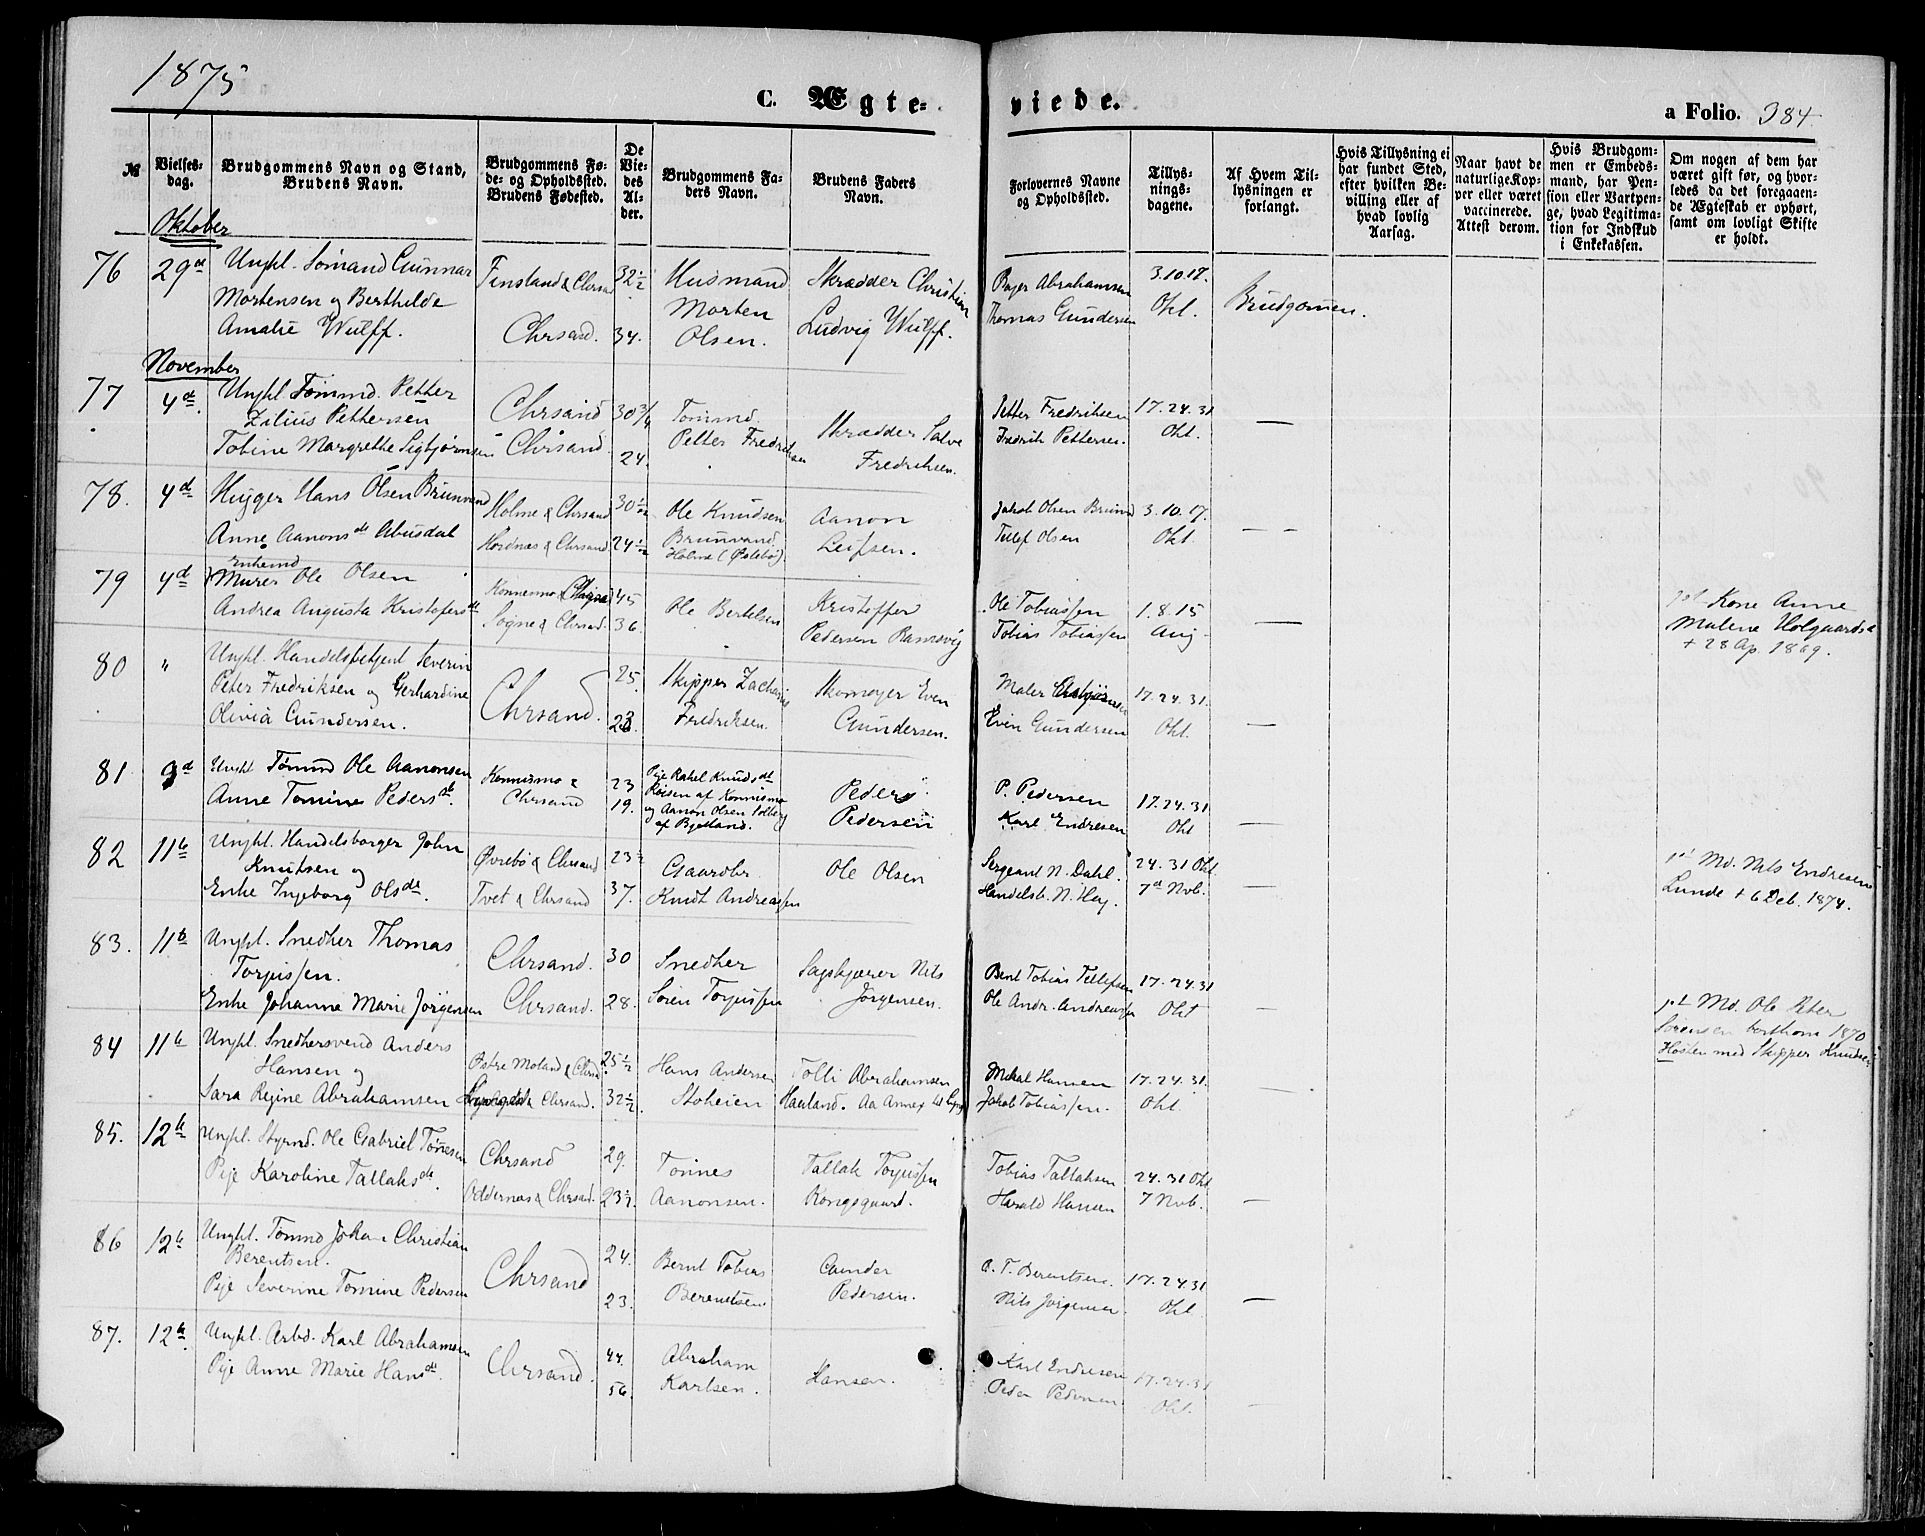 1875
C. Ægte-
viede.
a Folio. 384
№
Vielses-
dag.
Brudgommens Navn og Stand,
Brudens Navn.
Brudgommens Fø-
de- og Opholdssted.
Brudens Fødested.
De
Vie-
des
Al-
der.
Brudgommens Fa-
ders Navn.
Brudens Faders
Navn.
Forlovernes Navne
og Opholdssted.
Tillys-
nings-
dagene.
Af Hvem Til-
lysningen er
forlangt.
Hvis Tillysning ei
har fundet Sted,
efter hvilken Be-
villing eller af
hvad lovlig
Aarsag.
Naar havt de
naturlige Kop-
per eller været
vaccinerede.
Attest derom.
Hvis Brudgom-
men er Embeds-
mand, har Pen-
sion eller Vartpen-
ge, hvad Legitima-
tion for Indskud
i Enkekassen.
Om nogen af dem har
været gift før, og hvor-
ledes da det foregaaen-
de Ægteskab er ophørt,
samt om lovligt Skifte
er holdt.
Oktober
76 29de
Ungkl. Sømand Gunnar
Mortensen og Berthilde
Amalie Wulff.
Finsland & Chrsand
Chrsand.
32½
34.
Husmand
Morten
Olsen.
Skrædder Christian
Ludvig Wulff.
Boyer Abrahamsen
Thomas Gundersen
3.10.17.
Okt.
Brudgomen.
November
77 4de
Ungkl Tømmd. Petter
Zilius Pettersen
Tobine Margrethe Sigbjørnsen
Chrsand
Chrsand.
30¾
24.
Tømmd
Petter Fredriksen
Skrædder Salve
Fredriksen.
Petter Fredriksen
Fredrik Pettersen.
17.24.31
Okt.
78. 4de
Hugger Hans Olsen Brunvand
Anne Aanonsdt Abusdal
Holme & Chrsand
Hordnæs & Chrsand
30½
24½
Ole Knudsen
Brunvand
Holme (Øslebø)
Aanon
Leifsen.
Jakob Olsen Brunvd
Tellef Olsen
3.10.17.
Okt.
79 4de
Enkemd
Murer Ole Olsen
Andrea Augusta Kristofersdt
Konnesmo &
Sogne & Chrsand.
45
36.
Ole Bertelsen
Kristoffer
Pedersen Ramsvig
Ole Tobiassen
Tobias Tobiassen
1.8.15
Aug.
Kone Anne
Malene Holgaardsd
+ 28 Ap. 1869.
80 "
Ungkl. Handelsbetjent Severin
Peter Fredriksen og Gerhardine
Olivia Gundersen.
Chrsand.
25.
23.
Skipper Zacharias
Fredriksen.
Skomager Even
Gundersen.
Maler
Even Gundersen
17.24.31.
Okt.
81 9de
Ungkl Tømmd Ole Aanonsen
Anne Tomine Pedersdt.
Konnismo &
Chrsand
23
19.
Pige Rakel Knudsdt
Røisen af Konnismo
og Aanon Olsen Solberg
af Bjelland.
Peder
Pedersen
P. Pedersen
Karl Endresen
17.24.31
Okt
82 11te
Ungkl. Handelsborger John
Knutsen og
Enke Ingeborg Olsdt.
Øvrebø & Chrsand
Tvet & Chrsand
23½
37.
Gaardbr.
Knudt Andreassen
Ole Olsen
Sergeant N. Dahl.
Handelsb. N. Hey.
24.31 Okt
7de Novb.
Md. Nils Endresen
Lunde + 6 Deb. 1874.
83. 11te
Ungkl. Snedker Thomas
Torjussen.
Enke Johanne Marie Jørgensen
Chrsand.
Chrsand.
30
28.
Snedker
Søren Torjussen
Sagskjærer Nils
Jørgensen.
Bent Tobias Tellefsen
Ole Andr. Andreassen
17.24.31
Okt
Md. Ole Peter
Sørensen bortkom 1870
Høsten med Skipper Knudsen
84 11te
Ungkl. Snedkersvend Anders
Hansen og
Sara Regine Abrahamsen
Østre Moland & Chrsd
& Chrsand.
25½
32½
Hans Andersen
Stokeien
Tolli Abrahamsen
Haaland. Aa Annex til Lyngd
Mikal Hansen
Jakob Tobiassen.
17.24.31.
Okt.
85. 12te
Ungkl. Styrmd. Ole Gabriel Tønnesen
Pige Karoline Tallaksdt.
Chrsand
Oddernæs & Chrsand.
29.
23½
Tønnes
Aanonsen.
Tallak Torjussen
Kongsgaard.
Tobias Tallaksen
Harald Hansen
24.31 Okt
7 Novb.
86 12te
Ungkl. Tømmd Johan Christian
Berentsen.
Pige Severine Tomine Pedersen
Chrsand
24.
23.
Bernt Tobias
Berentsen.
Gunder
Pedersen.
B. T. Berentsen.
Nils Jørgensen.
17.24.31
Okt.
87. 12te
Ungkl. Arbd. Karl Abrahamsen
Pige Anne Marie Hansdt.
Chrsand.
44.
56.
Abraham
Karlsen.
Hansen.
Karl Endresen
Peder Pedersen
17.24.31
Okt.